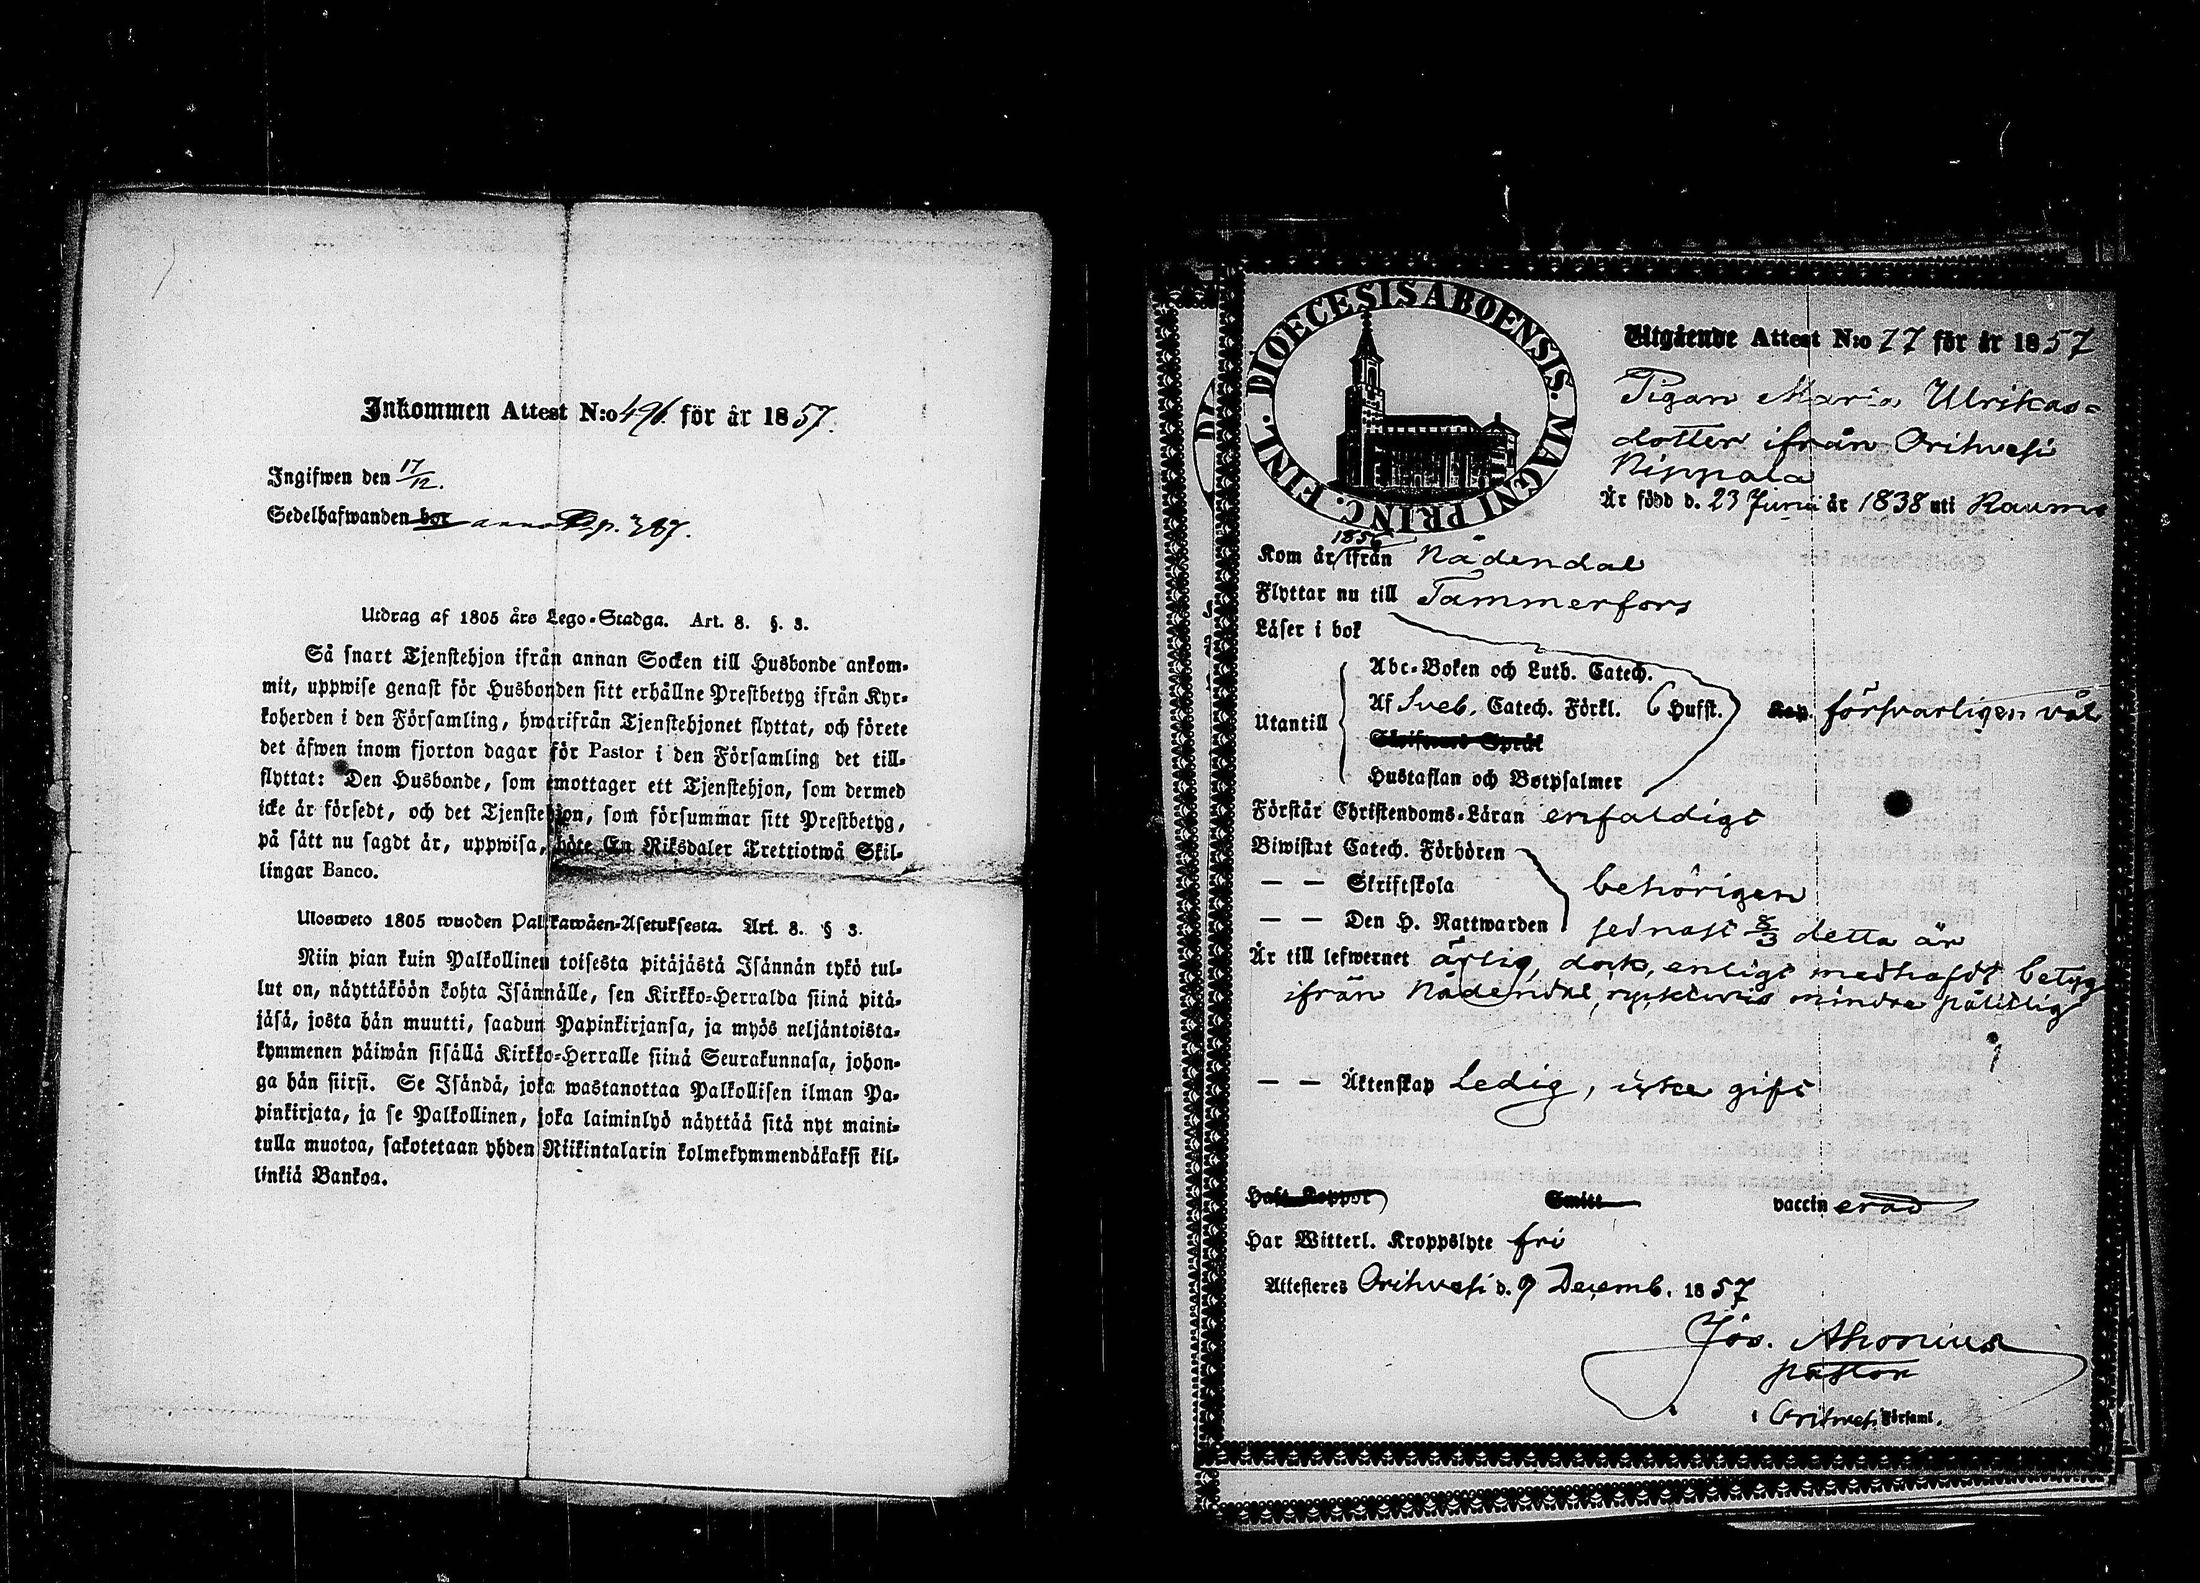 Inkommen Attest N:o 496 för år 1857.
Ingifwen den 17/12.
Sedelhafwanden bor p. 387.
Utdrag af 1805 års Lego-Stadga. Art. 8. §. 3.
Så snart Tjenstehjon ifrån annan Socken till Husbonde ankom-
mit, uppwise genast för Husbonden sitt erhållne Prestbetyg ifrån Kyr-
koherden i den Församling, hwarifrån Tjenstehjonet flyttat, och förete
det äfwen inom fjorton dagar för Pastor i den Församling det till-
flyttat: Den Husbonde, som emottager ett Tjenstehjon, som dermed
icke är försedt, och det Tjenstehjon, som försummar sitt Prestbetyg,
på sätt nu sagdt är, uppwisa, böte En Riksdaler Trettiotwå Skil-
lingar Banco.
Ulosweto 1805 wuoden Palkkawäen-Asetuksesta. Art. 8. § 3.
Niin pian kuin Palkollinen toisesta pitäjästä Isännän tykö tul-
lut on, näyttäköön kohta Isännälle, sen Kirkko-Herralda siinä pitä-
jäsä, josta hän muutti, saadun Papinkirjansa, ja myös neljäntoista-
kymmenen päiwän sisällä Kirkko-Herralle siinä Seurakunnasa, johon-
ga hän siirsi. Se Isändä, joka wastanottaa Palkollisen ilman Pa-
pinkirjata, ja se Palkollinen, joka laiminlyö näyttää sitä nyt maini-
tulla muotoa, sakotetaan yhden Riikintalarin kolmekymmendäkaksi kil-
linkiä Bankoa.
DIOECESIS ABOENSIS. MAGNI PRINC. FINL.
Utgående Attest N:o 77 för år 1857
Pigan Maria Ulrikas-
dotter ifrån Orihvesi
Nippala
Är född d. 23 Juni år 1838 uti Raumo
1856
Kom år ifrån Nådendal
Flyttar nu till Tammerfors
Läser i bok
Abc-Boken och Luth. Catech.
Utantill Af Sveb. Catech. Förkl. 6 Hufst. Kap. försvarligen väl
Skriftenes Språk
Hustaflan och Botpsalmer
Förstår Christendoms-Läran enfaldigt
Biwistat Catech. Förhören
— — Skriftskola behörigen
— — Den H. Nattwarden sednast 8/3 detta år
Är till lefwernet ärlig, dock, enligt medhafdt betyg
ifrån Nådendal, ryktevis mindre pålitlig
— — Äktenskap Ledig, icke gift
Haft Koppor Smitt vaccinerad
Har Witterl. Kroppslyte fri
Attesteres Orihvesi d. 9 Decemb. 1857
Jos. Ahonius
pastor
i Orihvesi Församl.